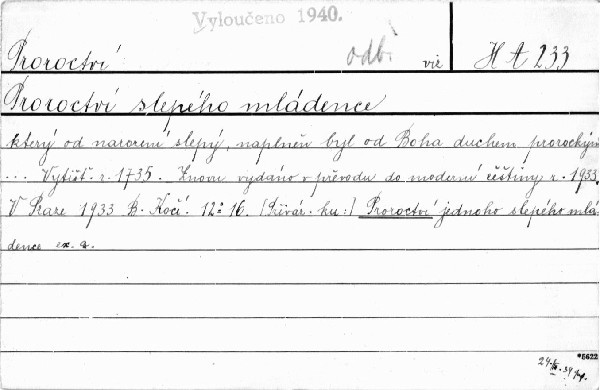 Vyloučeno 1940.
Proroctví odb. viz H A 233
Proroctví slepého mládence
který od narození slepý, naplněn byl od Boha duchem prorockým
... Vytišt. r. 1735. Znovu vydáno v převodu do moderní češtiny r. 1933.
V Praze 1933 B. Kočí. 12° 16. [Přívaz. ku:] Proroctví jednoho slepého mlá-
dence ex. a.
*5622